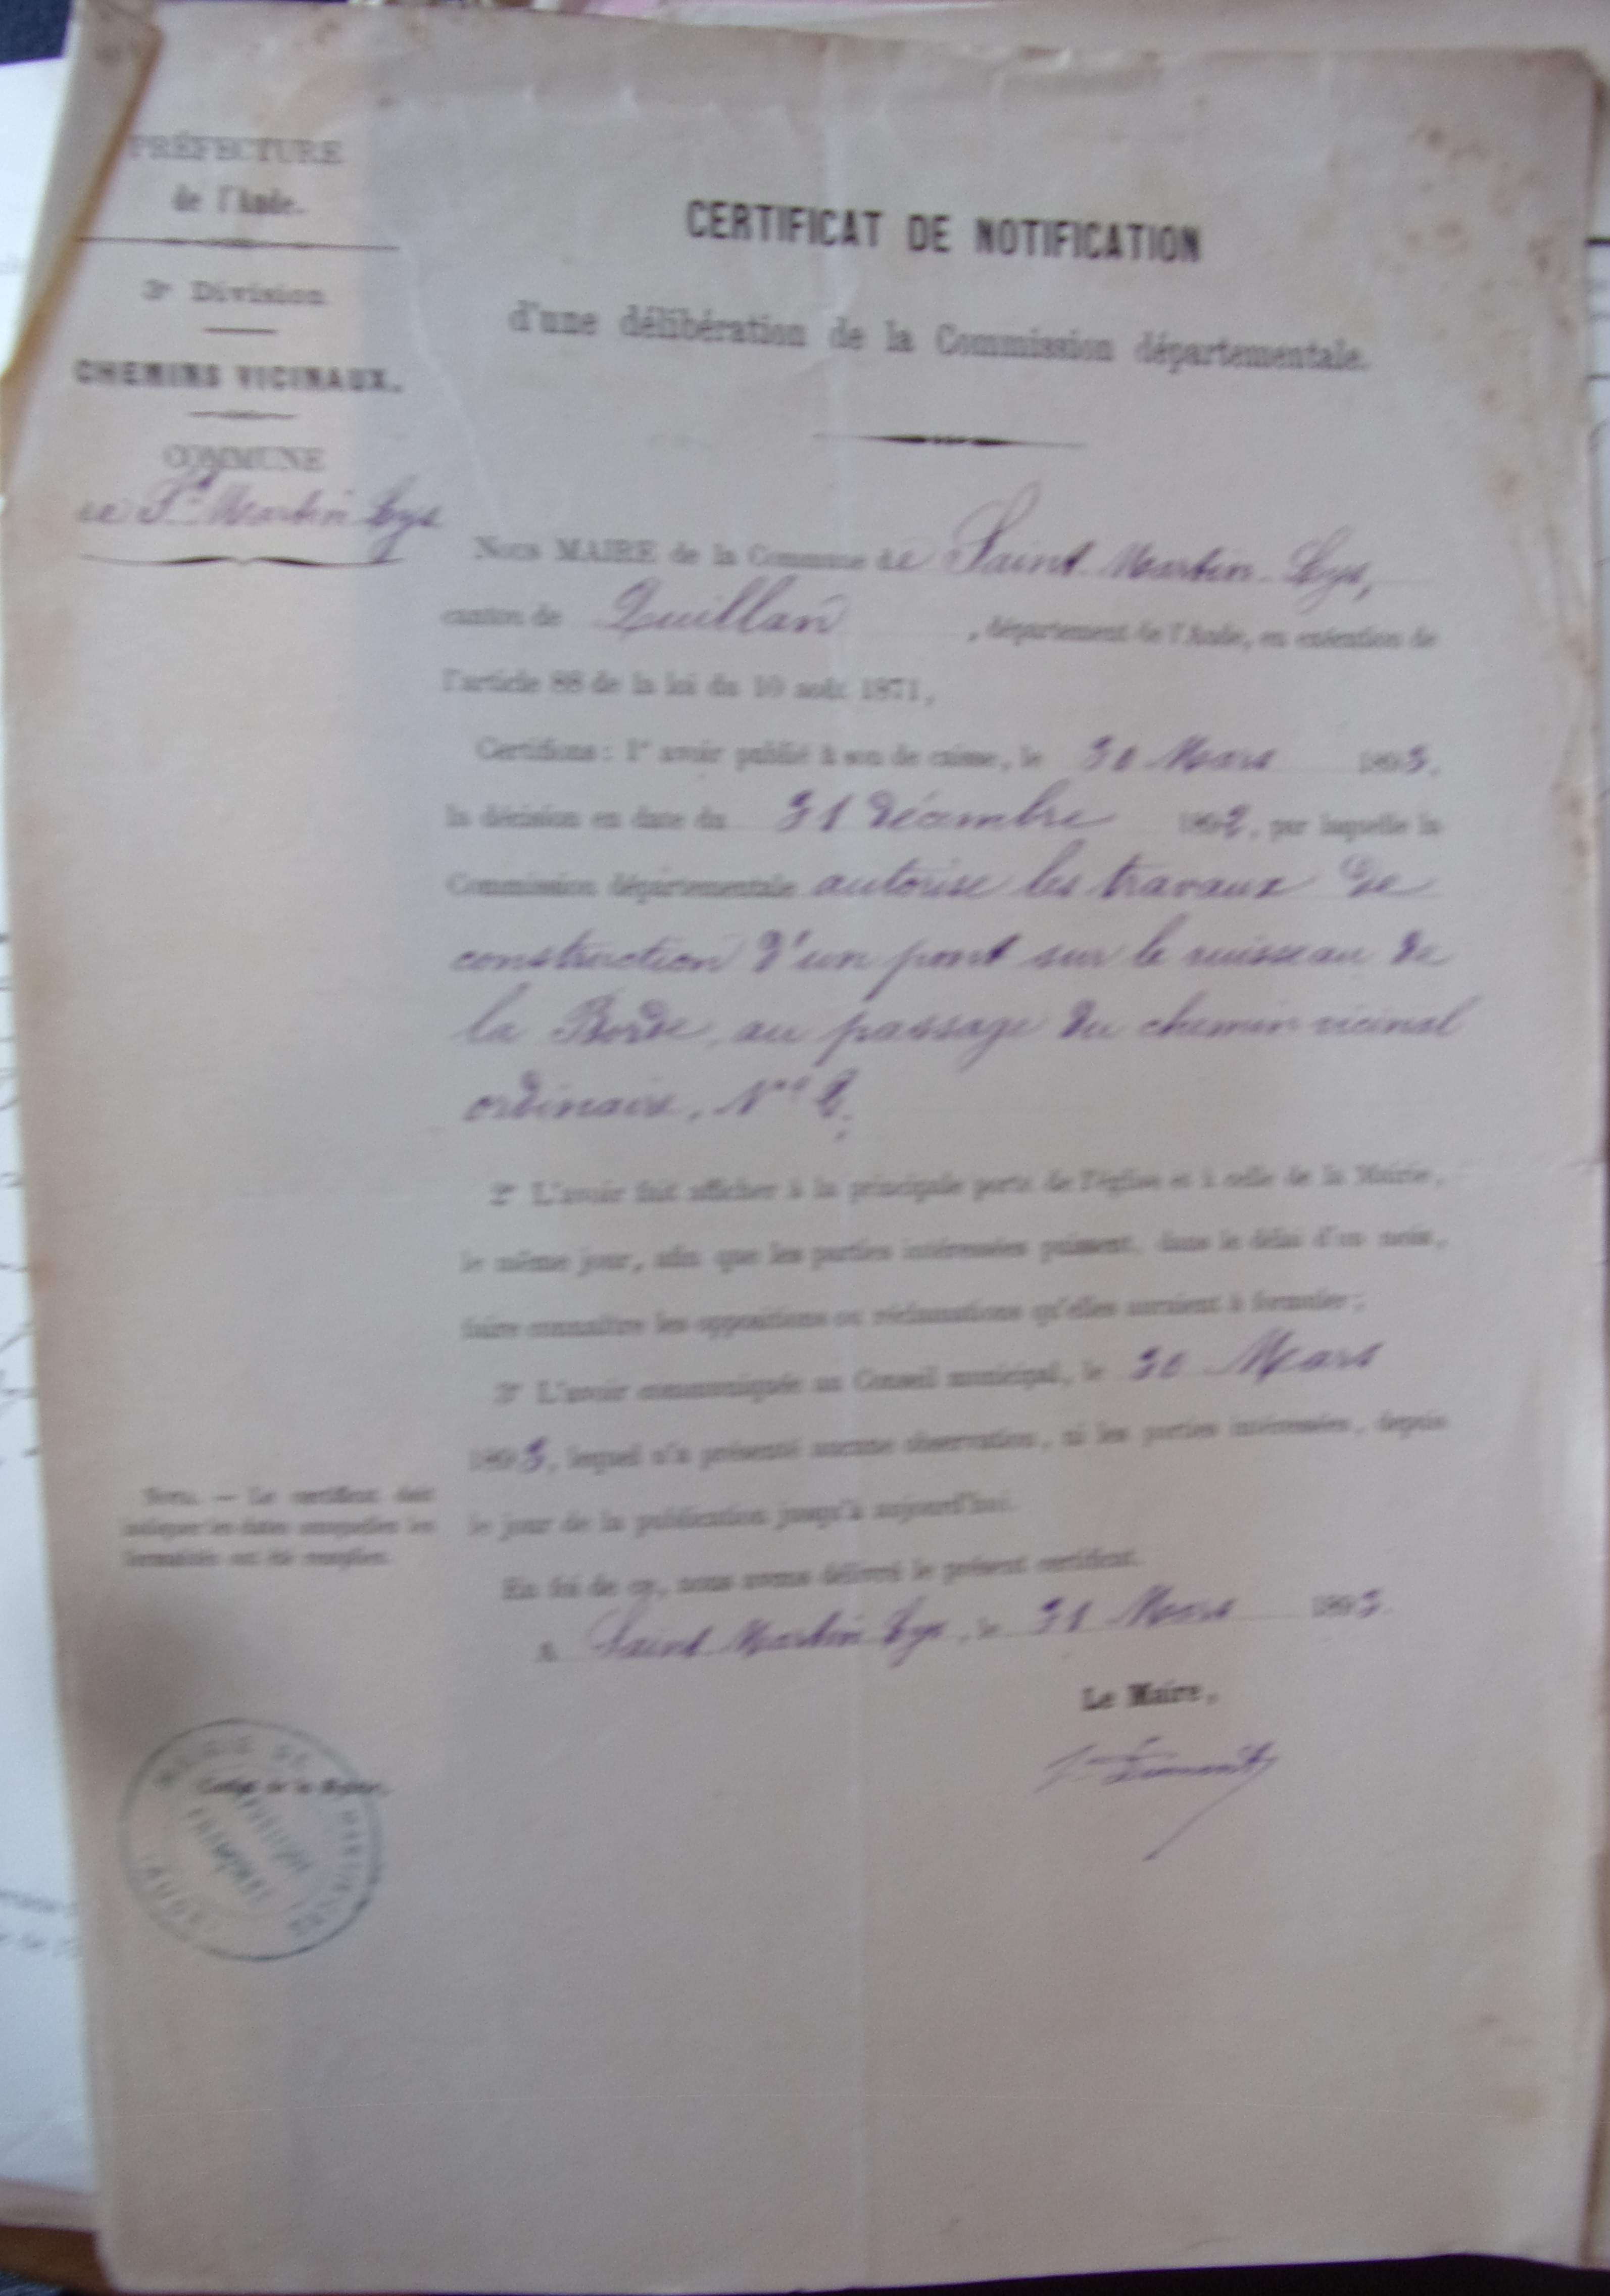 PRÉFECTURE
de l'Aude.
3e Division
CHEMINS VICINAUX.
COMMUNE
de St Martin Lys
CERTIFICAT DE NOTIFICATION
d'une délibération de la Commission départementale.
Nous MAIRE de la Commune de Saint Martin-Lys,
canton de Quillan, département de l'Aude, en exécution de
l'article 88 de la loi du 10 août 1871,
Certifions: 1° avoir publié à son de caisse, le 30 Mars 1893.
la décision en date du 31 décembre 1892, par laquelle la
Commission départementale autorise les travaux de
construction d'un pont sur le ruisseau de
la Borde, au passage du chemin vicinal
ordinaire, N° 2.
2° L'avoir fait afficher à la principale porte de l'église et à celle de la Mairie,
le même jour, afin que les parties intéressées puissent, dans le délai d'un mois,
faire connaître les oppositions ou réclamations qu'elles auraient à formuler;
3° L'avoir communiquée au Conseil municipal, le 30 Mars
1893, lequel n'a présenté aucune observation, ni les parties intéressées, depuis
le jour de la publication jusqu'à aujourd'hui.
En foi de ce, nous avons délivré le présent certificat.
A Saint Martin Lys, le 31 Mars 1893
Le Maire,
Nota. — Le certificat doit
indiquer les dates auxquelles les
formalités ont été remplies.
Cachet de la Mairie.
MAIRIE DE MARTIN LYS
AUDE
RÉPUBLIQUE
FRANÇAISE